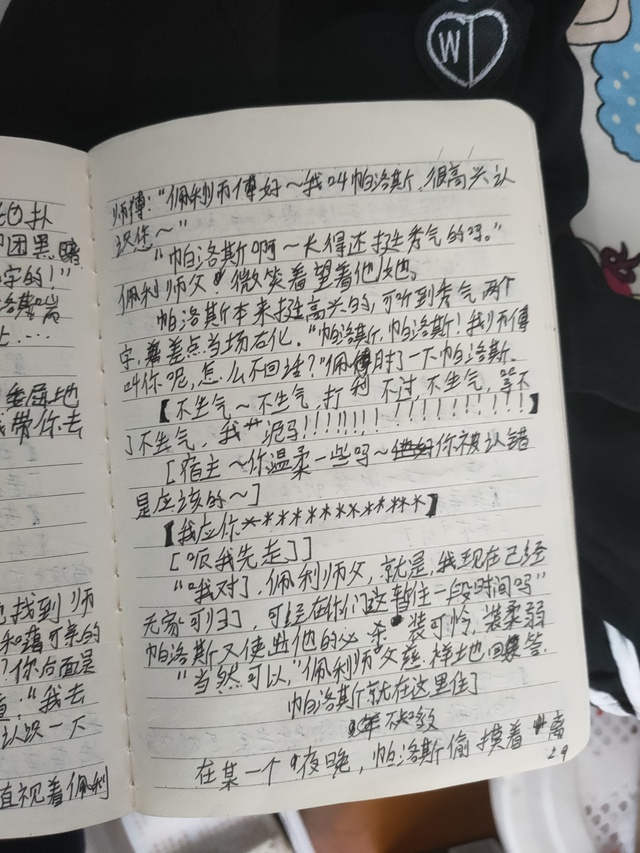 W
地扑
团黑暗
字的！”
上……
委屈地
带你去
找到师
和蔼可亲的
？你后面是
道：“我去
认识一下
直视着佩利
师傅：“佩利师傅好～我叫帕洛斯，很高兴认
识您～”
“帕洛斯啊～长得还挺秀气的吗。”
佩利师父微笑着望着他她。
帕洛斯本来挺高兴的，可听到秀气两个
字，差点当场石化。“帕洛斯，帕洛斯！我师傅
叫你呢，怎么不回话？”佩利肘了一下帕洛斯。
【不生气～不生气，打不过，不生气，等不
了不生气，我艹泥马！！！！！！！！！！！！！！！！】
[宿主～你温柔一些吗～你被认错
是应该的～]
【我应你*************】
[呃我先走]]
“哦对了，佩利师父，就是，我现在已经
无家可归了，可经在你们这暂住一段时间吗”
帕洛斯又使出他的必杀装可怜，装柔弱
“当然可以，”佩利师父慈祥地回答。
帕洛斯就在这里住了
在某一个夜晚，帕洛斯偷摸着离
29